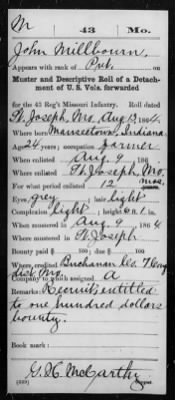 M | 43 | Mo.
John Millbourn.
Appears with rank of Pvt. on
Muster and Descriptive Roll of a Detach-
ment of U. S. Vols. forwarded
for the 43 Reg't Missouri Infantry. Roll dated
St. Joseph, Mo. Aug 13, 1864.
Where born Indiana
Age 24 years; occupation Farmer
When enlisted Aug 9, 1864
Where enlisted St. Joseph, Mo.
For what period enlisted 12 mos.
Eyes grey; hair light
Complexion light; height 6 ft. in.
When mustered in Aug 9, 1864
Where mustered in St. Joseph
Bounty paid $ 100; due $ 100
Where credited Buchanan Co. 7 Cong
dist Mo.
Company to which assigned A
Remarks: Recruit, entitled
to one hundred dollars
bounty.
Book mark:
G. H. McCarthy
(339) Copyist.